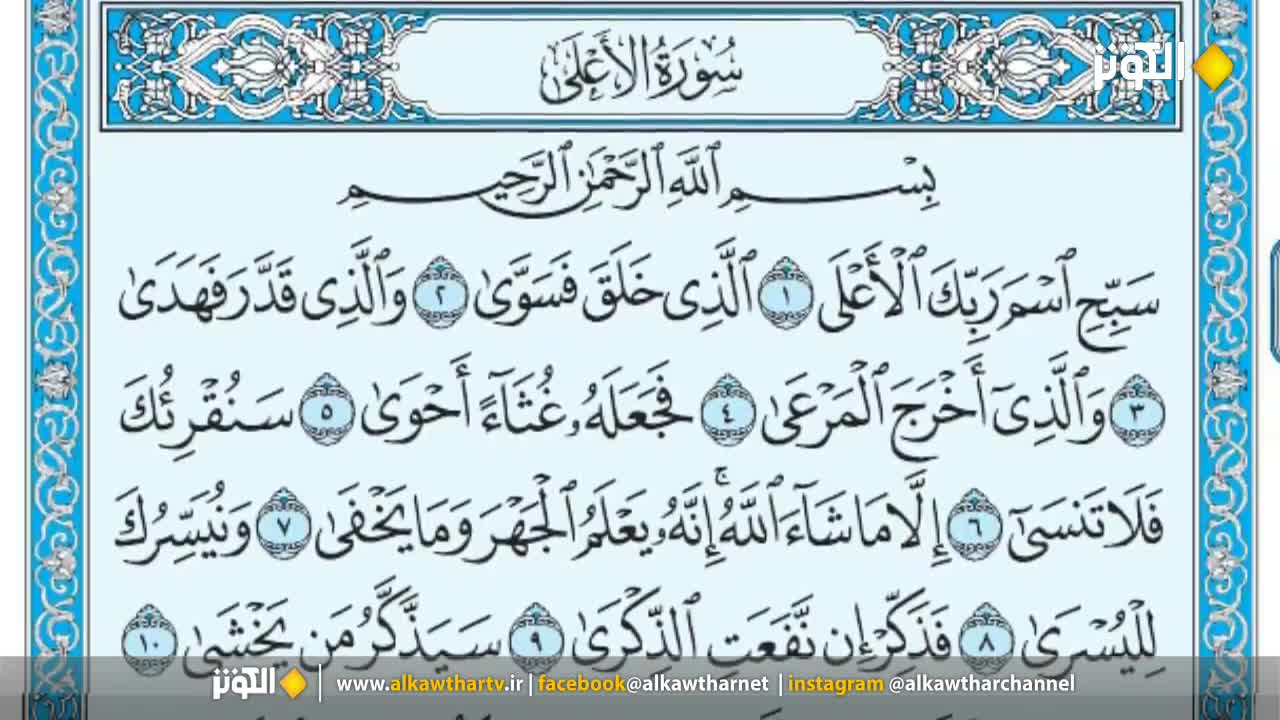 سُورَةُ الأَعْلَى
الكوثر
بِسْمِ اللَّهِ الرَّحْمَٰنِ الرَّحِيمِ
سَبِّحِ ٱسْمَ رَبِّكَ ٱلْأَعْلَى ١ ٱلَّذِى خَلَقَ فَسَوَّىٰ ٢ وَٱلَّذِى قَدَّرَ فَهَدَىٰ
٣ وَٱلَّذِىٓ أَخْرَجَ ٱلْمَرْعَىٰ ٤ فَجَعَلَهُۥ غُثَآءً أَحْوَىٰ ٥ سَنُقْرِئُكَ
فَلَا تَنسَىٰٓ ٦ إِلَّا مَا شَآءَ ٱللَّهُ ۚ إِنَّهُۥ يَعْلَمُ ٱلْجَهْرَ وَمَا يَخْفَىٰ ٧ وَنُيَسِّرُكَ
لِلْيُسْرَىٰ ٨ فَذَكِّرْ إِن نَّفَعَتِ ٱلذِّكْرَىٰ ٩ سَيَذَّكَّرُ مَن يَخْشَىٰ ١٠
الكوثر | www.alkawthartv.ir | facebook@alkawtharnet | instagram @alkawtharchannel